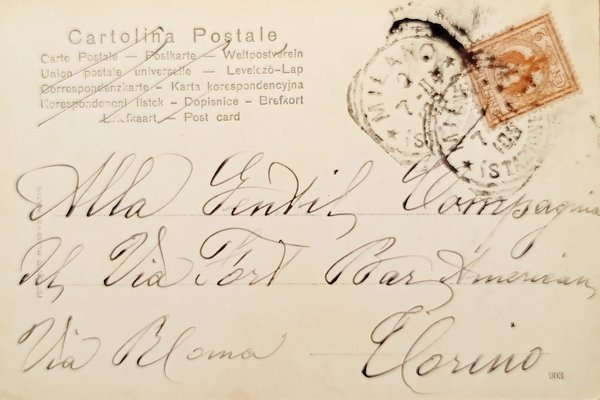 Cartolina Postale
Carte Postale — Postkarte — Weltpostverein
Union postale universelle — Levelező-Lap
Correspondenzkarte - Karta korespondencyjna
Korespondencni listek - Dopisnice - Brefkort
Briefkaart — Post card
MILANO
MILANO
Alla Gentil Compagnia
Del Via Fort Bar American
Via Roma Torino
903